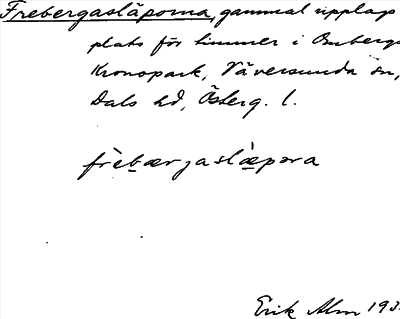 Frebergasläporna, gammal upplag
plats för timmer i Omberg
Kronopark, Väversunda sn,
Dals hd, Österg. l.
frèbærjaslæ̀pəra
Erik Alm 193